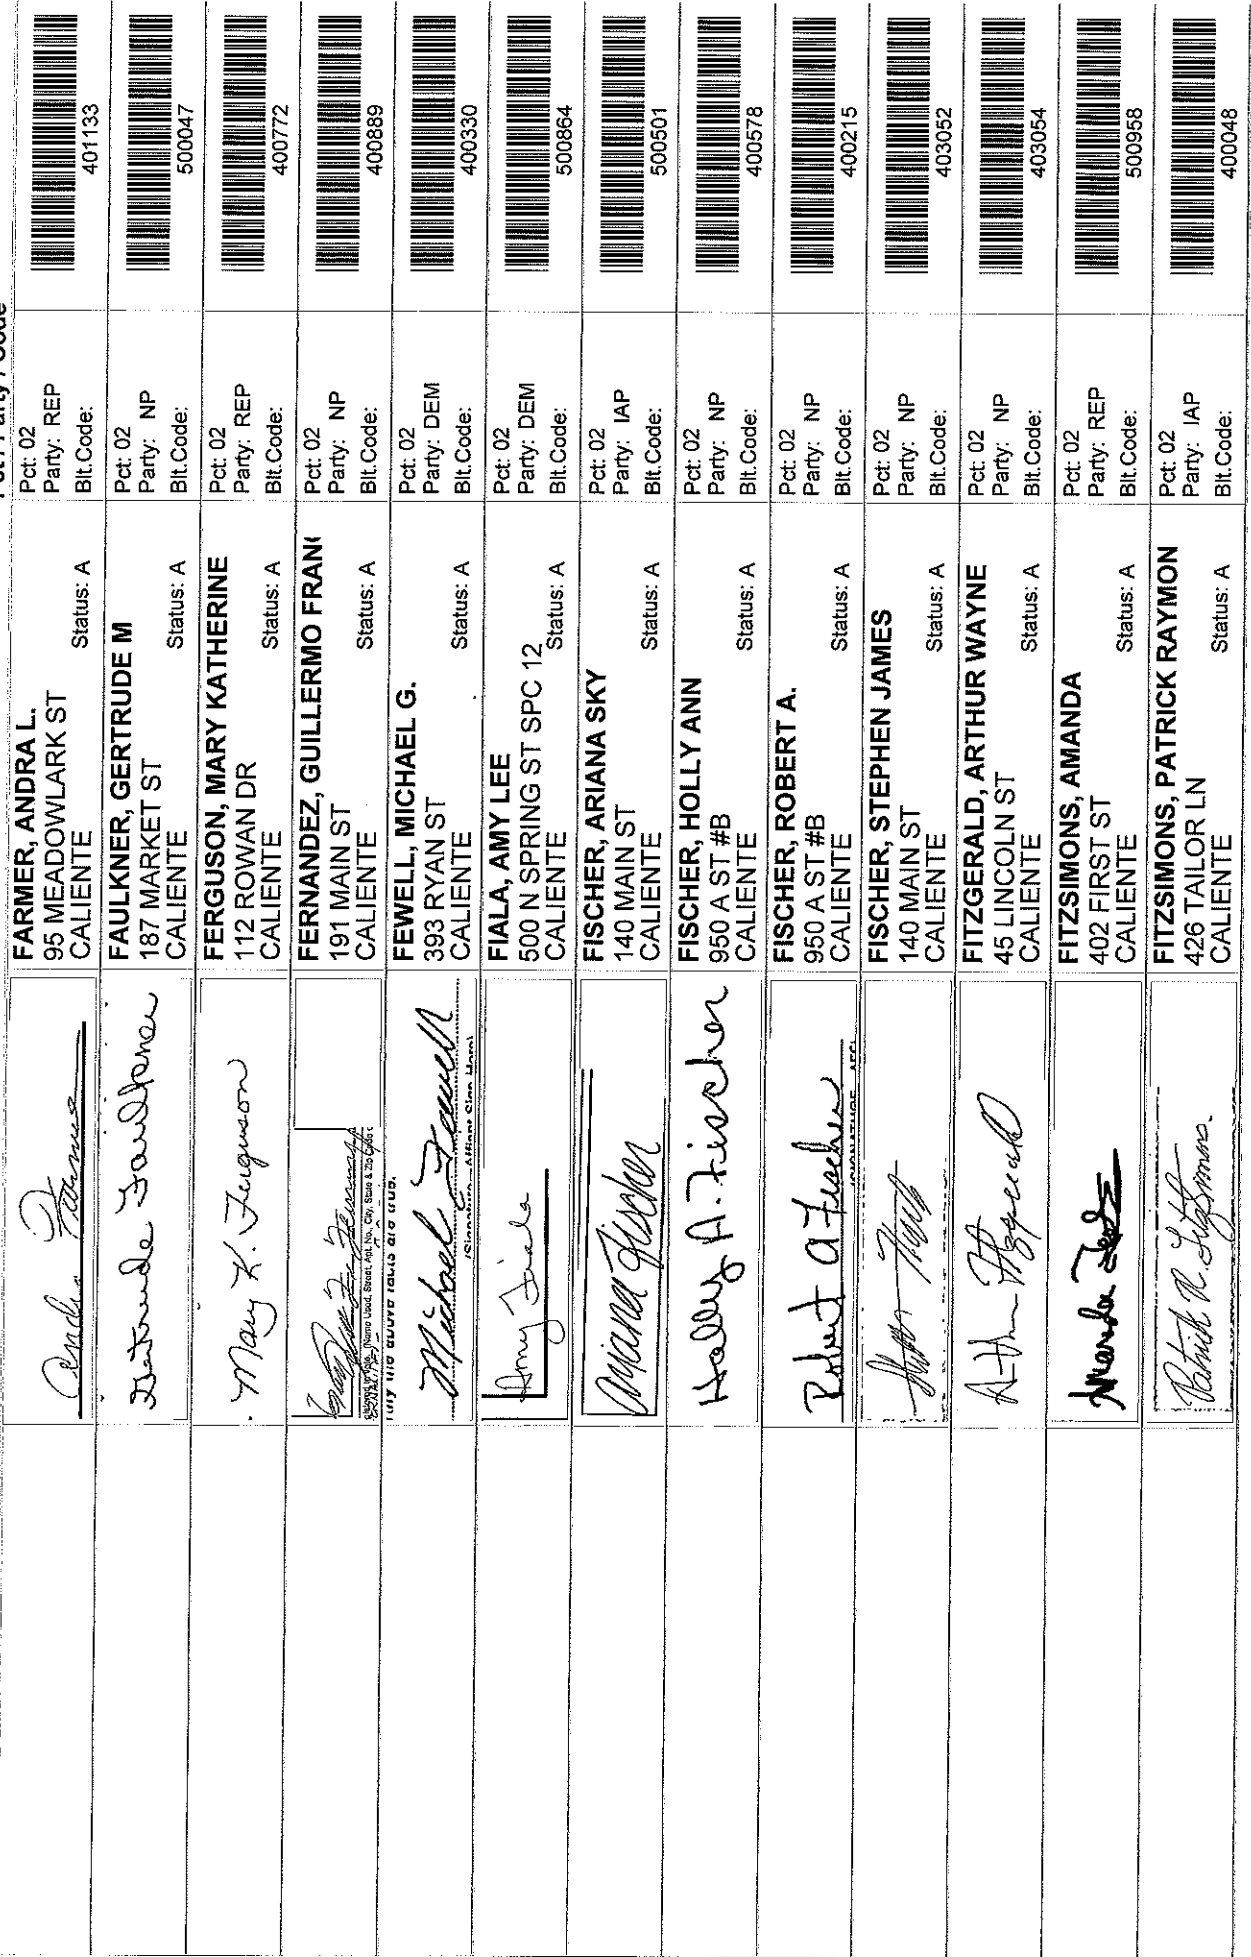 Pct / Party / Code
Andra Farmer
FARMER, ANDRA L.
95 MEADOWLARK ST
CALIENTE
Status: A
Pct: 02
Party: REP
Blt.Code:
401133
Gertrude Faulkner
FAULKNER, GERTRUDE M
187 MARKET ST
CALIENTE
Status: A
Pct: 02
Party: NP
Blt.Code:
500047
Mary K. Ferguson
FERGUSON, MARY KATHERINE
112 ROWAN DR
CALIENTE
Status: A
Pct: 02
Party: REP
Blt.Code:
400772
FERNANDEZ, GUILLERMO FRAN
191 MAIN ST
CALIENTE
Status: A
Pct: 02
Party: NP
Blt.Code:
400889
the above facts are true.
Michael Fewell
(Signature - Affiant Sign Here)
FEWELL, MICHAEL G.
393 RYAN ST
CALIENTE
Status: A
Pct: 02
Party: DEM
Blt.Code:
400330
Amy Fiala
FIALA, AMY LEE
500 N SPRING ST SPC 12
CALIENTE
Status: A
Pct: 02
Party: DEM
Blt.Code:
500864
Ariana Fischer
FISCHER, ARIANA SKY
140 MAIN ST
CALIENTE
Status: A
Pct: 02
Party: IAP
Blt.Code:
500501
Holly A. Fischer
FISCHER, HOLLY ANN
950 A ST #B
CALIENTE
Status: A
Pct: 02
Party: NP
Blt.Code:
400578
Robert A Fischer
FISCHER, ROBERT A.
950 A ST #B
CALIENTE
Status: A
Pct: 02
Party: NP
Blt.Code:
400215
FISCHER, STEPHEN JAMES
140 MAIN ST
CALIENTE
Status: A
Pct: 02
Party: NP
Blt.Code:
403052
FITZGERALD, ARTHUR WAYNE
45 LINCOLN ST
CALIENTE
Status: A
Pct: 02
Party: NP
Blt.Code:
403054
Amanda
FITZSIMONS, AMANDA
402 FIRST ST
CALIENTE
Status: A
Pct: 02
Party: REP
Blt.Code:
500958
Patrick R. Fitzsimons
FITZSIMONS, PATRICK RAYMON
426 TAILOR LN
CALIENTE
Status: A
Pct: 02
Party: IAP
Blt.Code:
400048